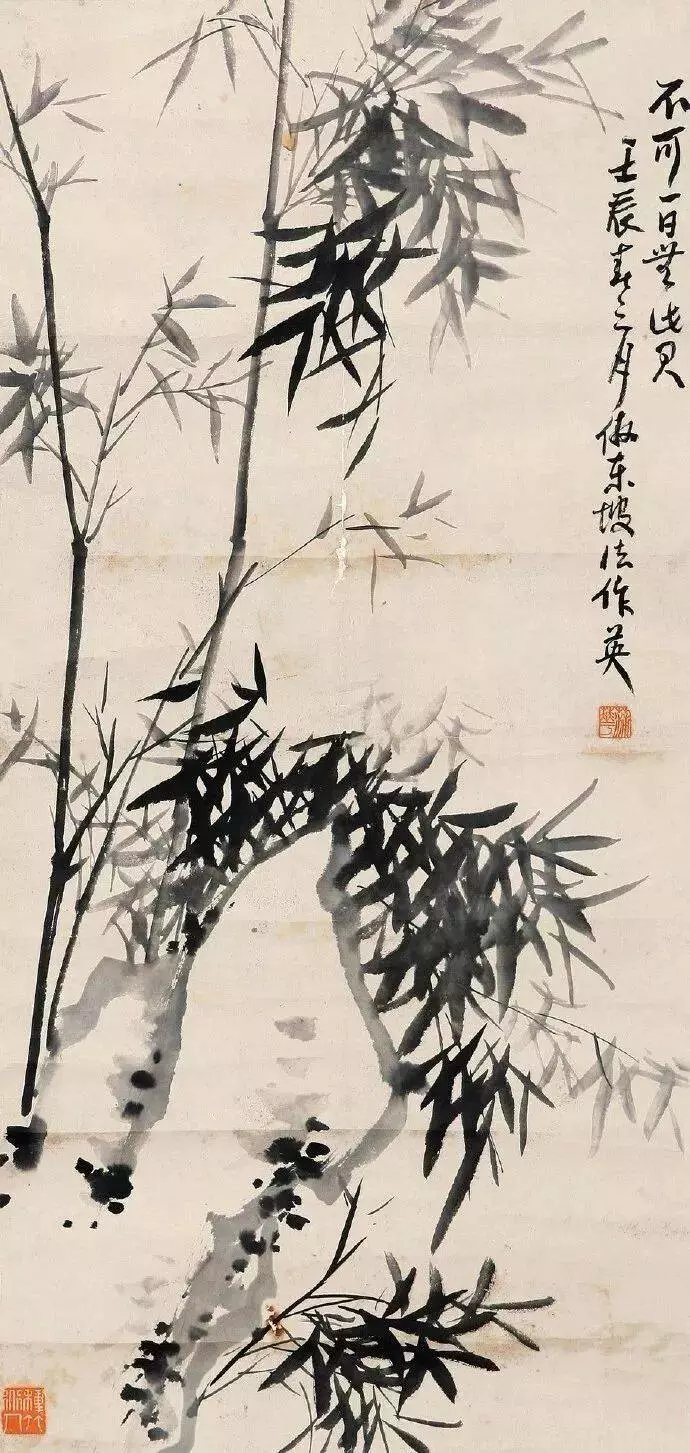 不可一日無此君
壬辰春三月仿东坡法作英
蒲華